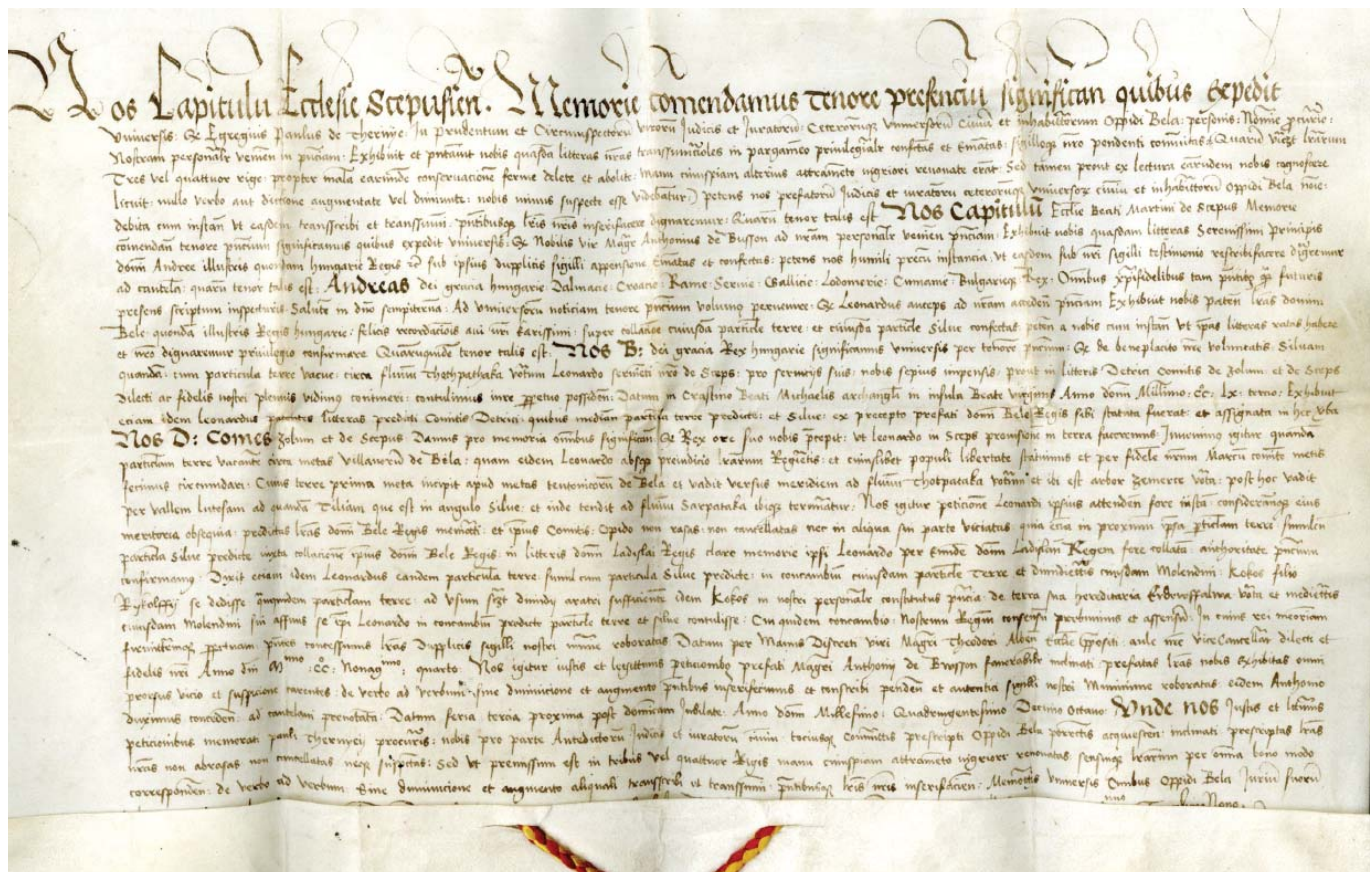 Nos Capitulu Ecclesie Scepusien. Memorie comendamus Tenore presenciu significan quibus Expedit
Universis: Qz Egregius Paulus de Thernije: In prudentum et Circumspectoru virorum Judicis et Juratoru: Ceterorumqz Universoru Civiu et inhabittorum Oppidi Bela: personis: Nomine
Nostram personalr venien in pnciam: Exhibuit et pntavit nobis quasda litteras nras transsumcioles in pargameno privilegialr confectas et Ematas: sigilloqz nro pendenti comunitas: Quaru lrarum
Tres vel quattuor rige: propter mala earunde conservacione ferme delete et abolite: Manu cuiuspiam alterius attrameto nigriori renovate erat: Sed tamen prout ex lectura earundem nobis cognoscere
licuit: nullo verbo aut diccione augmentate vel diminute: nobis minus suspecte esse videbatur: petens nos prefatoru Judicis et iuratoru ceterorumqz universorz civiu et inhabittoru Oppidi Bela noie:
debita cum instan ut easdem transscribi et transsumi: pntibusqz lris nris inserifacere dignaremur: Quaru tenor talis est: Nos Capitulu Ecclie Beati Martini de Scepus Memorie
comendan tenore pnciu significamus quibus expedit universis: Qz Nobilis vir Magr Anthonius de Busson ad nram personalr venien pnciam: Exhibuit nobis quasdam litteras Serenissimi principis
domini Andree illustris quondam hungarie Regis sub ipsius dupplicis sigilli appensione Ematas et confectas: petens nos humili precu instancia: ut easdem sub nri sigilli testimonio rescribifacere digremur
ad cautela: quaru tenor talis est: Andreas dei gracia hungarie Dalmacie: Croacie Rame: Servie: Gallicie: Lodomerie: Cumanie: Bulgarieqz Rex: Omnibus xpifidelibus tam pntibz qz futuris
presens scriptum inspecturis: Salute in dno sempiterna: Ad universoru noticiam tenore pncium volumo pervenire: Qz Leonardus auceps ad nram acceden pnciam Exhibuit nobis paten lras domini
Bele: quonda illustris Regis hungarie: felicis recordaciois avi nri karissimi: super collacoe cuiusda particle terre: et cuiusda particle Silve confectas: peten a nobis cum instan ut ipas litteras ratas habere
et nro dignaremur privilegio confirmare Quarumquide tenor talis est: Nos B: dei gracia Rex hungarie significamus universis per tenore pncium: Qz de beneplacito nre volumtatis: Silvam
quanda: cum particula terre vacue: circa fluviu Thothpathaka votum Leonardo nro de Sceps: pro serviciis suis: nobis sepius impensis: prout in litteris Detrici Comitis de Zolum: et de Sceps
dilecti ac fidelis nostri plenius vidimus contineri: contulimus iure ppetuo possiden: Datum in Crastino Beati Michaelis archangli in insula Beate virginis Anno domi Millimo: CC: Lx: tercio: Exhibuit
eciam idem leonardus patentes litteras predicti Comitis Detrici: quibus median particla terre predicte: et Silve: ex precepto prefati domi Bele Regis sibi statuta fuerat: et assignata in hec vba
Nos D: Comes Zolum et de Scepus Damus pro memoria omibus significan Qz Rex ore suo nobis pcepit: ut leonardo in Sceps provisione in terra faceremus: Invenimo igitur quanda
particlam terre vacante circa metas villanoru de Bela: quam eidem Leonardo absqz preiudicio lrarum Regietis: et cuiuslibet populi libertate statuimus et per fidele nrum Marcu comite metis
fecimus circumdari: Cuius terre prima meta incipit apud metas teutonicoru de Bela et vadit versus meridiem ad fluviu Thotpataka votum et ibi est arbor zemerce vota: post hoc vadit
per vallem lutosam ad quanda Tiliam que est in angulo Silve: et inde tendit ad fluviu Sarpataka ibiqz terminatur: Nos igitur peticione Leonardi ipsius attenden fore iusta: considerantqz eius
meritoria obsequia: predictas lras domi Bele Regis memoti: et ipius Comitis: Opido non rasas: non cancellatas nec in aliqua sui parte viciatas: quia ecia in proximu ipsa pticlam terre: simulcu
particla Silve predicte: iuxta collacione ipius domi Bele Regis: in litteris domi Ladislai Regis clare memorie ipsi Leonardo per Eunde domi Ladislau Regem fore collata: authoritate pncium
confirmamus: Dixit eciam idem Leonardus eandem particula terre: simul cum particula Silve predicte: in concambiu cuiusdam particle Terre et dimidietis cuiusdam Molendini: Kokos filio
Rykolffy se dedisse quamquidem particlam terre: ad usum dimidij aratri sufficiente idem Kokos in nostri personalr constitutus pncia: de terra sua hereditaria vota et medietetis
cuiusdam Molendini sui assumpsit se ipi Leonardo in concambiu predicte particle terre et silve contulisse: Cui quidem concambio: Nostrum Regiu consensu prebuimus et assensu: In cuius rei moriam
firmitatemqz ppetuam pntes concessimus lras Dupplicis sigilli nostri munie roboratas Datum per Manus Discreti viri Magri Theodori Alben Ecclie ppositi: aule nre viceCancellarij dilecti et
fidelis nri Anno dni Mmo: CC: Nonagmo: quarto: Nos igitur iustis et legittimis peticionibz prefati Magri Anthony de Busson favorabiliter inclinati prefatas lras nobis exhibitas omni
prorsus vicio et suspicione carentes: de verbo ad verbum: sine diminucione et augmento pntibus inserifecimus et conscribi penden et autentici sigilli nostri Munimine roboratas eidem Anthonio
duximus conceden: ad cautelam prenotata: Datum feria tercia proxima post dominicam Jubilate: Anno domi Millesimo: Quadringentesimo Decimo Octavo: Unde nos Justis et
peticionibus memorati pauli Thernyei procuris: nobis pro parte Antedictoru Judicis et iuratoru civiu: tociusqz Comunitis prescripti Oppidi Bela porrectis acquiescen: inclinati prescriptas lras
nras non abrasas non cancellatas: neqz suspectas: Sed ut premissum est in tribus vel quattuor Rigis manu cuiuspiam attrameto nigriori renovatas: sensusqz lrarum per omnia bono modo
corresponden: de verbo ad verbum: Sine diminucione et augmento aliquali transscribi et transsumi: pntibusqz lris nris inserifacien: Memoratis Universis Civibus Oppidi Bela Juriu suoru